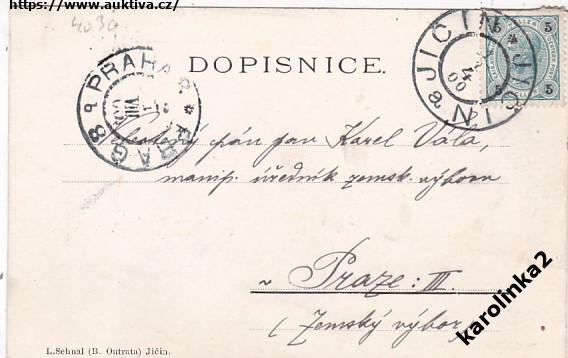 https://www.auktiva.cz/
4030
JIČIN * JIČIN
5 5
5 5
PRAHA * PRAG
VIII
DOPISNICE.
pán pan Karel Vála,
manip. úředník zemsk. výboru
v Praze: III.
(Zemský výbor)
L. Sehnal (B. Outrata) Jičín.
karolinka2